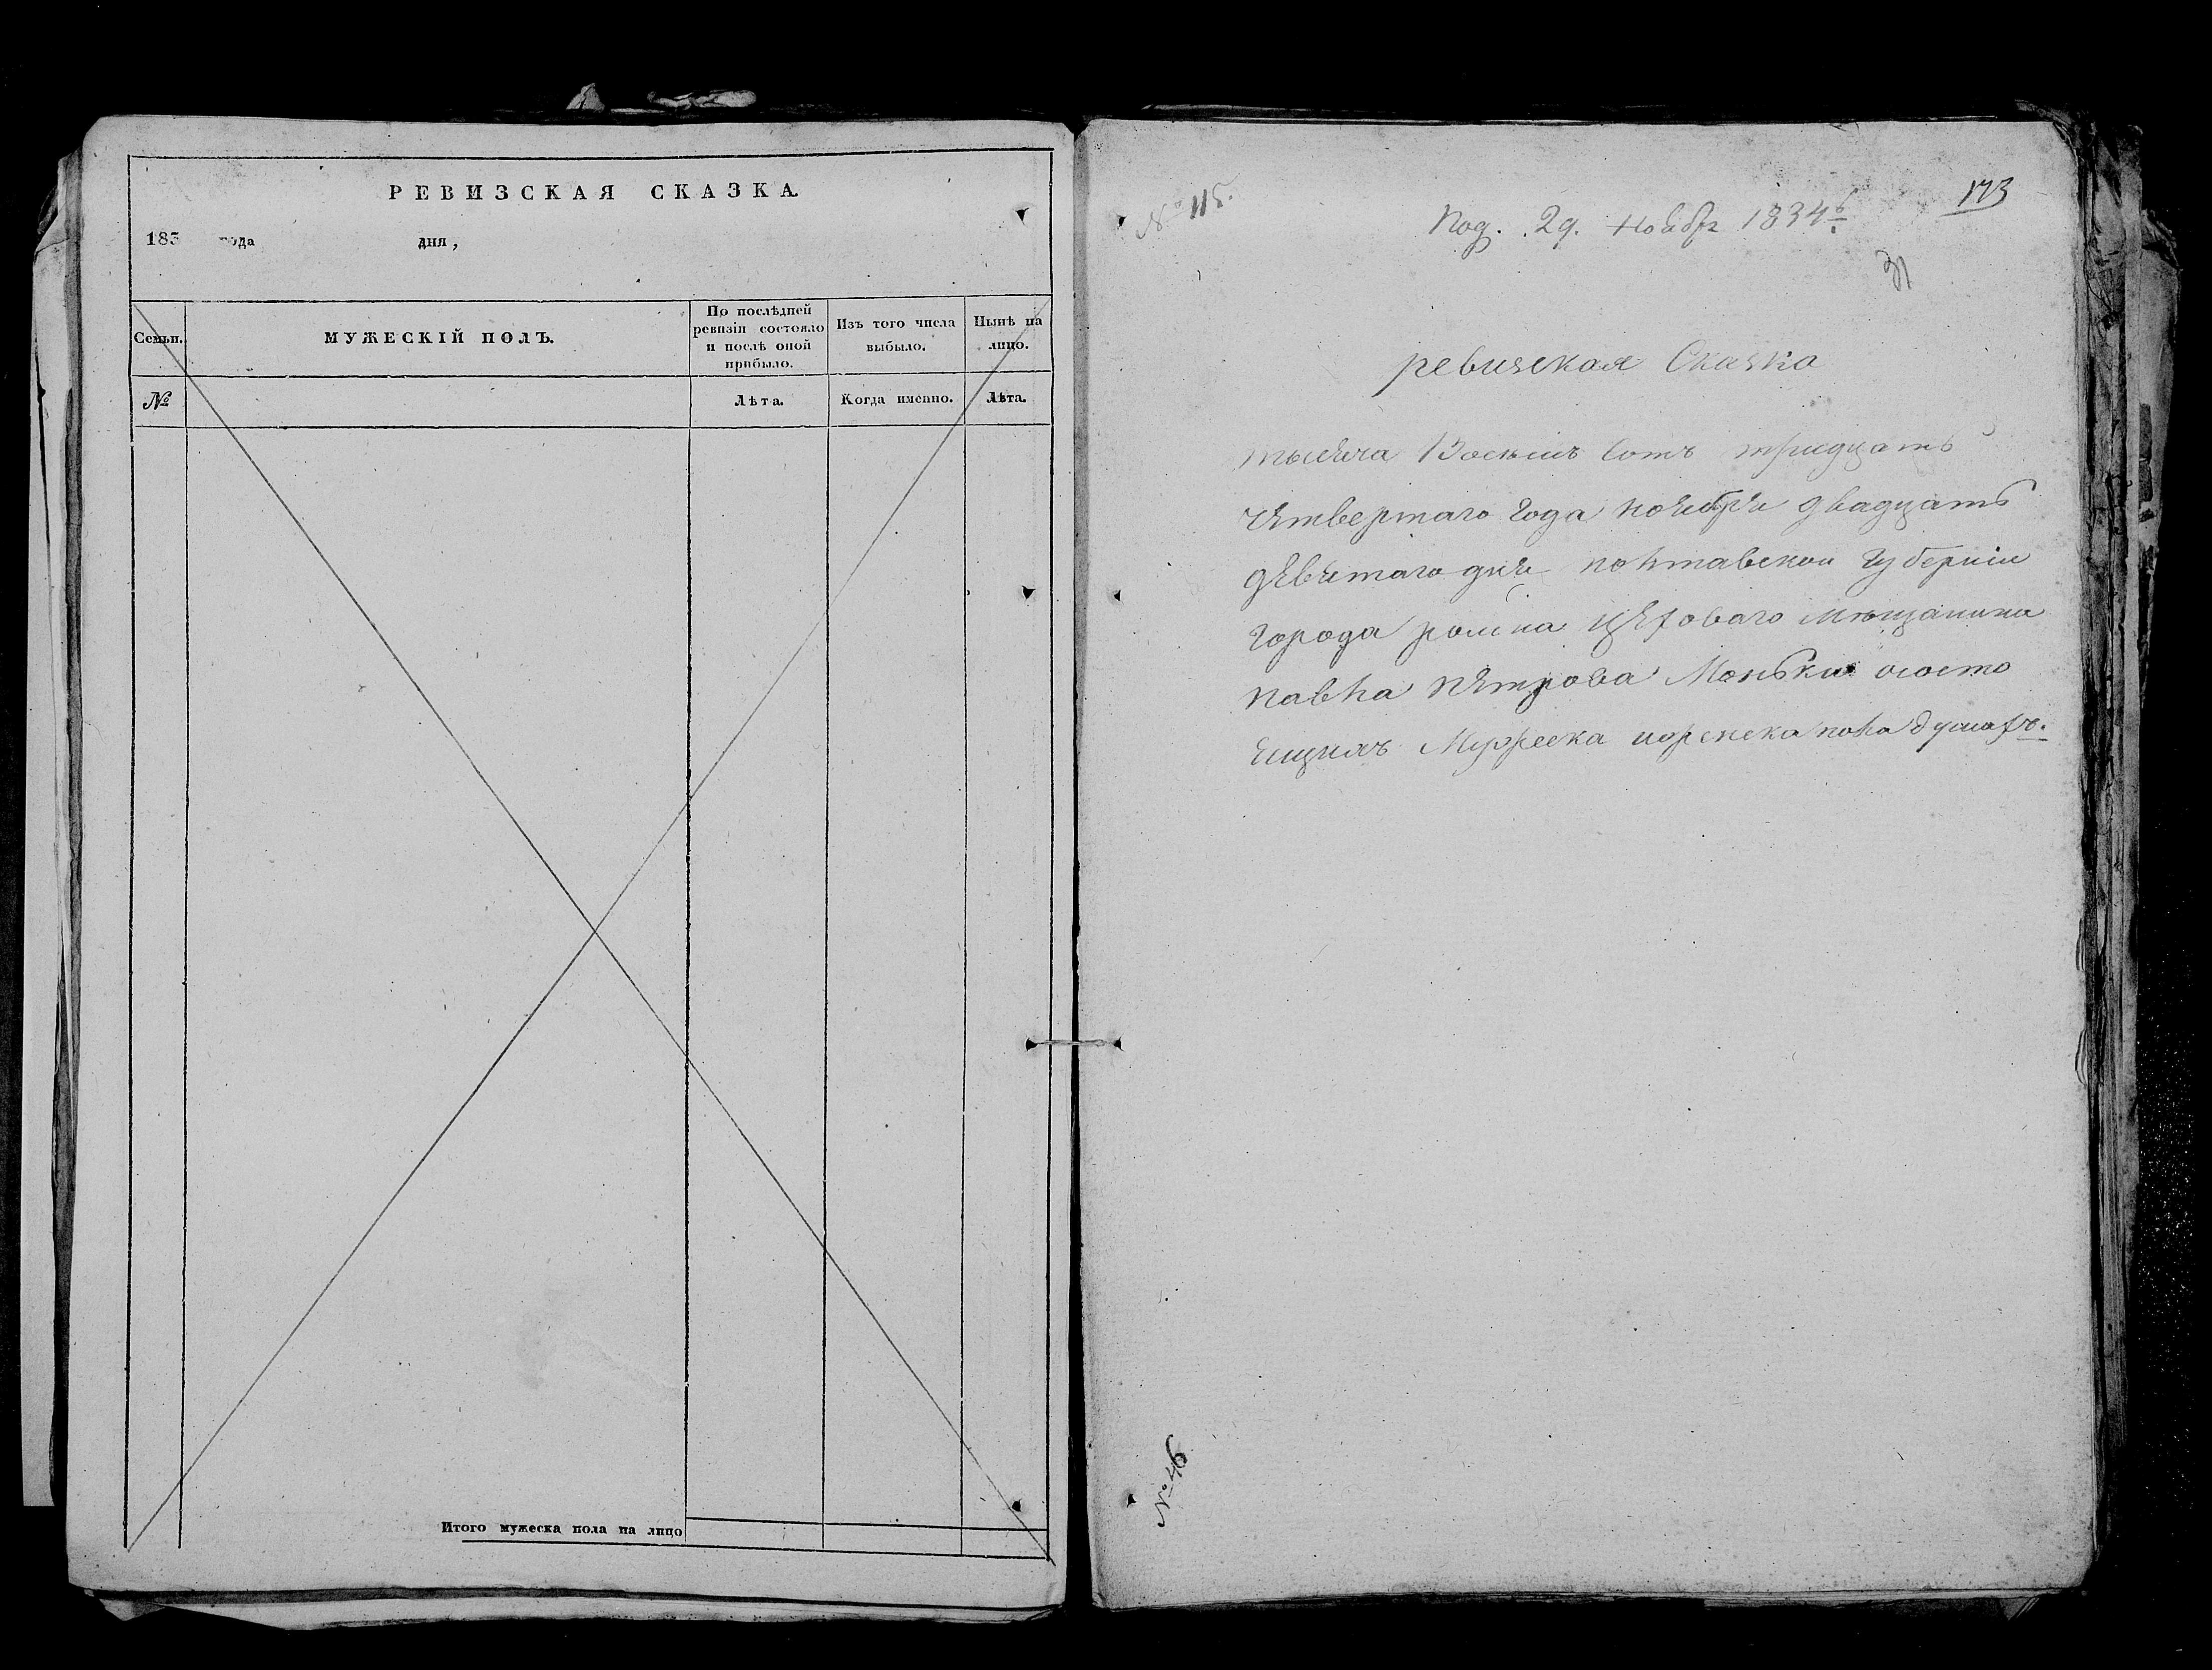 РЕВИЗСКАЯ СКАЗКА.
183 года дня,
Семьи. МУЖЕСКІЙ ПОЛЪ. По послѣдней ревизіи состояло и послѣ оной прибыло. Изъ того числа выбыло. Нынѣ на лицо.
№ Лѣта. Когда именно. Лѣта.
Итого мужеска пола на лицо
№ 115.
173
Под. 29. Ноябр 1834
31
ревизская Сказка
тысяча Восемь сотъ тридцать
четвертаго года ноября двадцать
девятаго дня полтавской губерніи
города ромна цеховаго мещанина
павла петрова Моньки о состо
ящихъ мужеска и женска пола душахъ.
№ 46